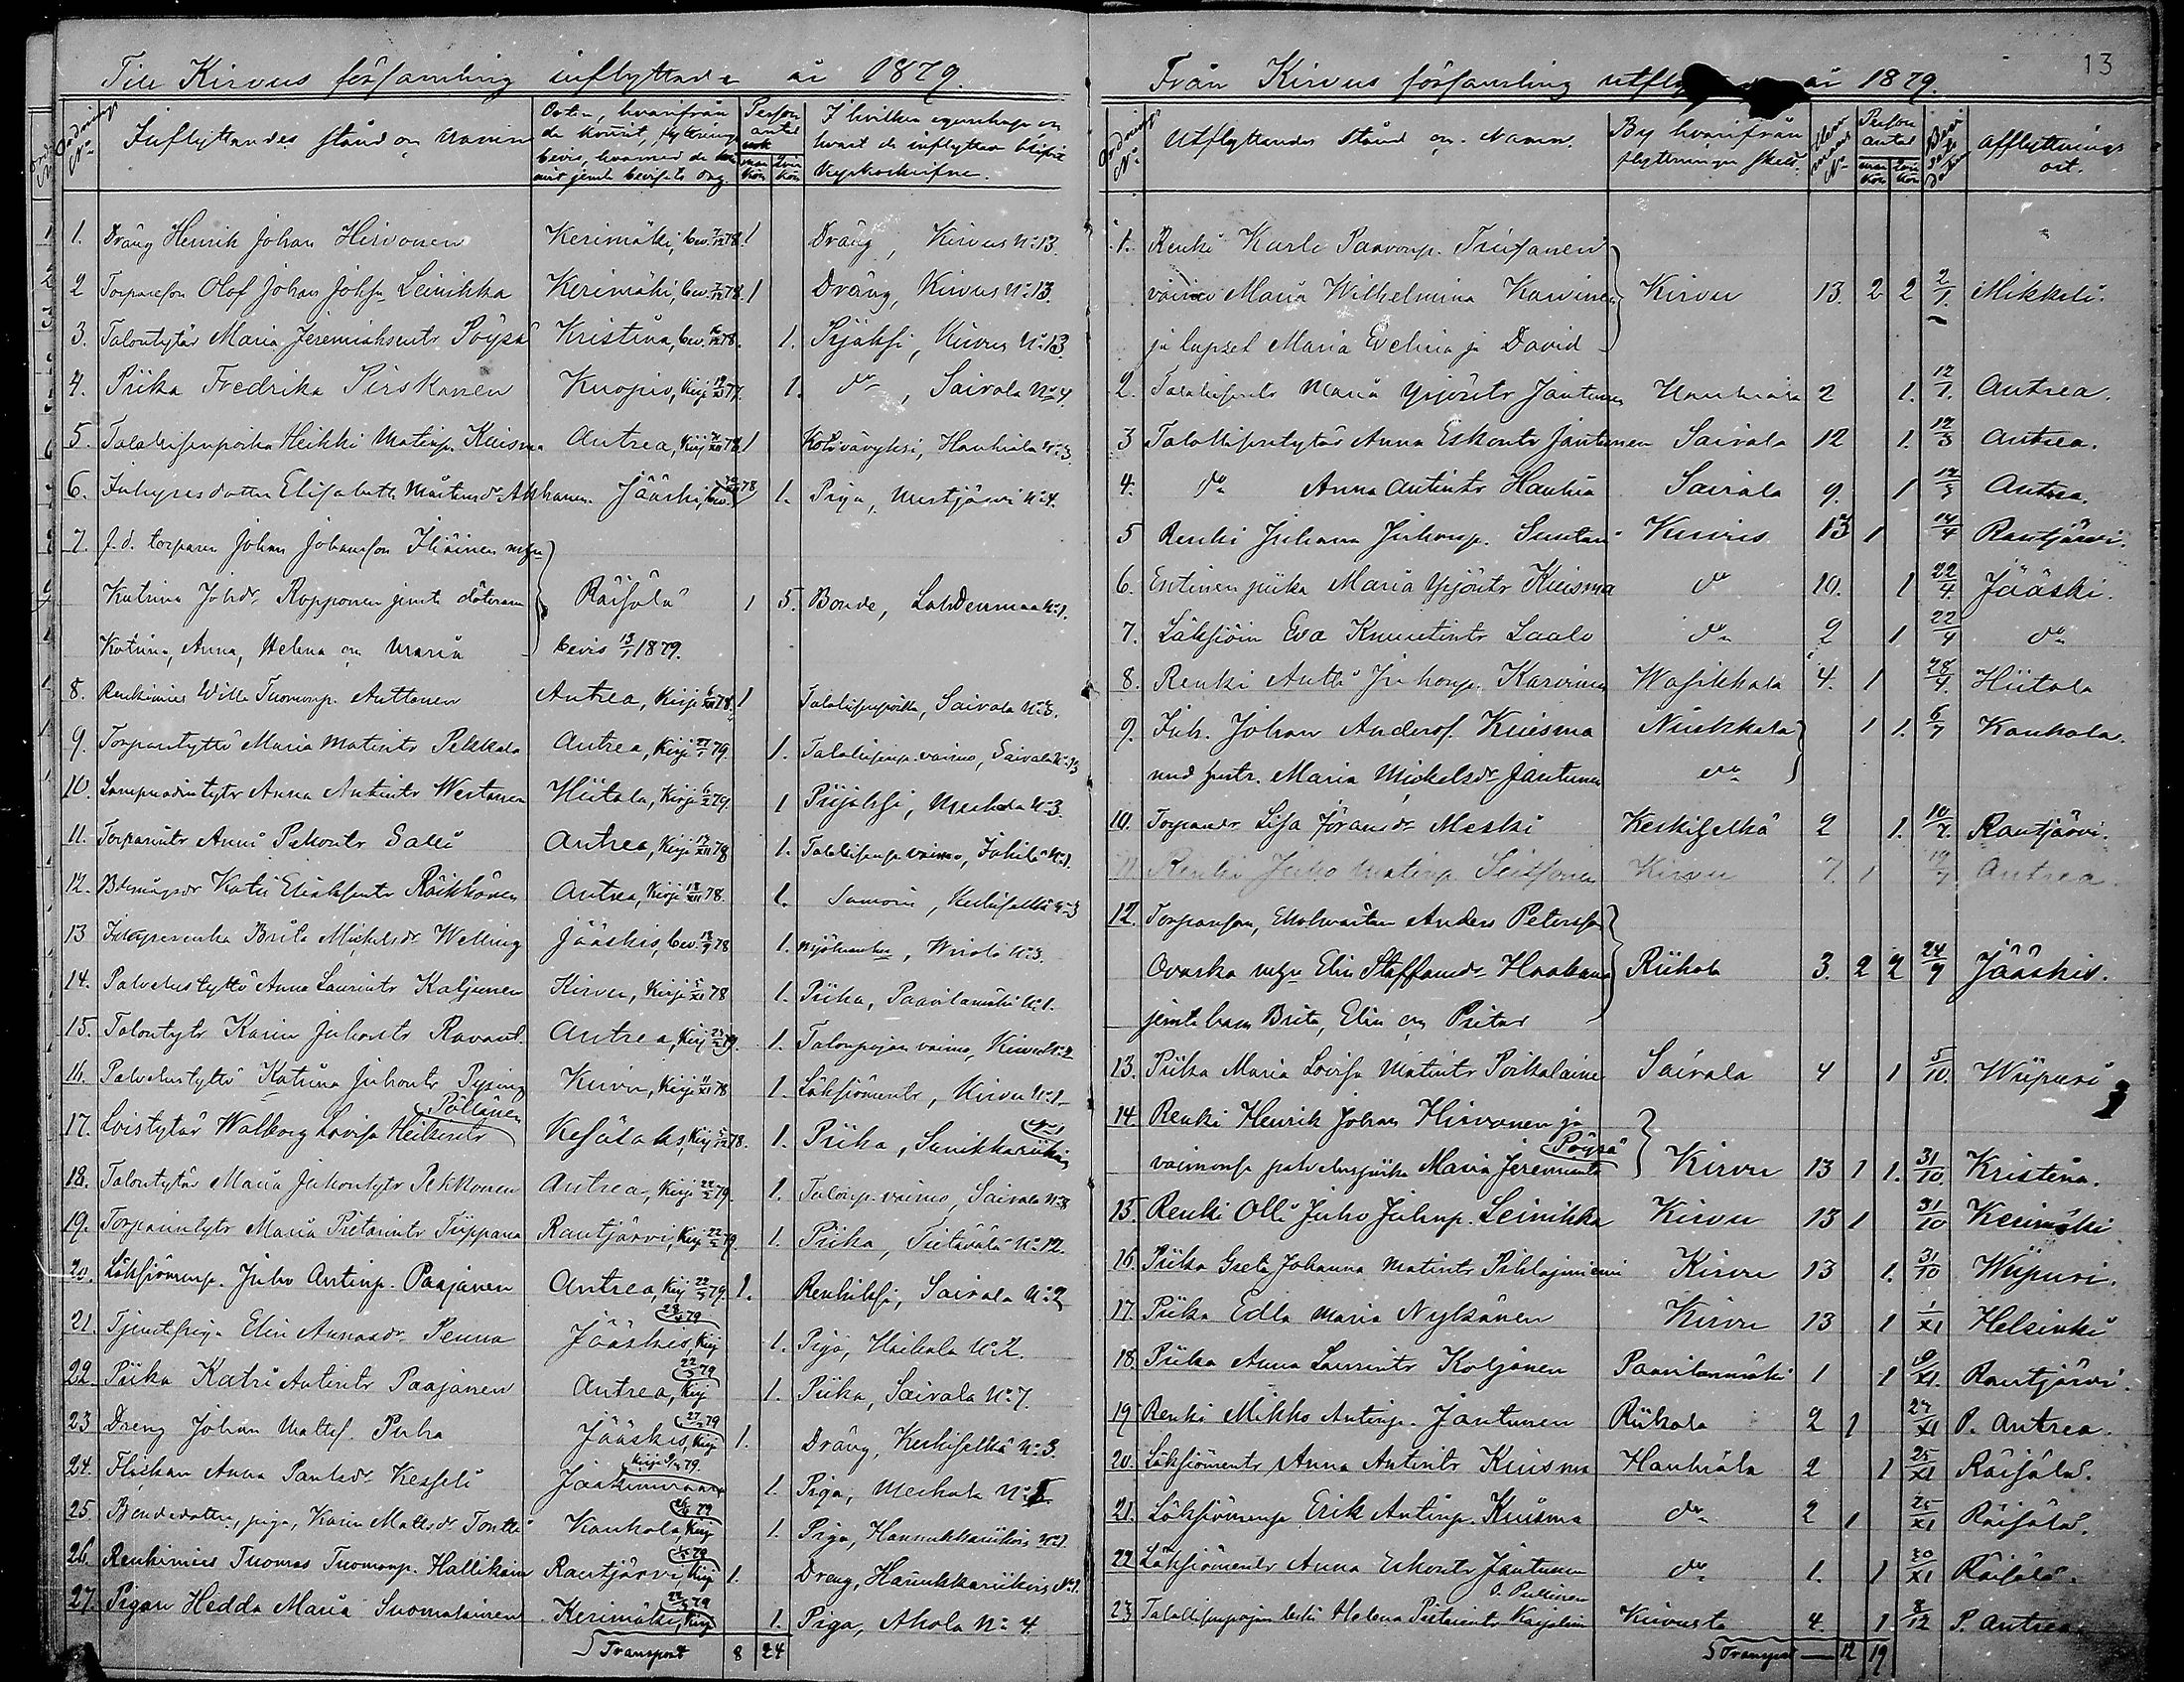 Till Kirvus församling inflyttade år 1879.
Ordnings No
Inflyttandes stånd och namn
Orten, hvarifrån de kommit, flyttnings bevis, hvarmed de jemte bevisets dag.
Person antal
man kön
qvin kön
I hvilken egenskap och hvart de inflyttade blifvit kyrkoskrifne.
1. Dräng Henrik Johan Hirvonen Kerimäki, bev. 7/12 78. 1 Dräng, Kirvus No 13.
2 Torpareson Olof Johan Johsn Leinikka Kerimäki, bev. 7/12 78. 1 Dräng, Kirvus No 13.
3. Talontytär Maria Jeremiaksentr Pöysä Kristina, bev. 78. 1. Piijaksi, Kirvus No 13.
4. Piika Fredrika Pirskanen Kuopio, Kirj 77. 1. do, Sairala No 4.
5. Talollisenpoika Heikki Matinp. Kuisma Antrea, Kirj 78 1 Kotivävyksi, Hauhiala No 3.
6. Inhysesdotter Elisabeth Mårtensdr Akkanen Jääski, bev. 78 1. Piga, Mertjärvi No 4.
7. f.d. torparen Johan Johansson Iliäinen m hu
Katrina Johdr Ropponen jemte döttrarna Räisälä 1 5. Bonde, Lahdenmaa No 1.
Katrina, Anna, Helena och Maria bevis 13/1 1879.
8. Renkimies Wille Tuomonp. Anttonen Antrea, Kirje 6/XII 78. 1 Talollisenpoika, Sairala No 8.
9. Torparintyttö Maria Matintr Pekkala Antrea, Kirje 79. 1. Talollisenp. vaimo, Sairala No 13
10. Lampuodintytr Anna Antintr Westanen Hiitola, Kirje 6/2 79 1 Piijaksi, Merkola No 3.
11. Torparintr Anni Pekontr Salli Antrea, Kirje 17/XII 78 1. Talollisenp. vaimo, Inkilä No 1.
12. Katri Eliaksentr Räikkönen Antrea, Kirje 18/XII 78. 1. Keskiselkä No 3
13 Brita Mickelsdr Welling Jääskis, bev. 18/9 78 1. No 3.
14. Palvelustyttö Anna Laurintr Koljonen Kirvu, Kirje 5/XI 78 1. Piika, Paavilamäki No 1.
15. Talontytr Karin Juhontr Ravant. Antrea, Kirj 79. 1. Talonpojan vaimo, Kirvu No 2
16. Palvelustyttö Katrina Juhontr Pysing Kirvu, Kirje 11/XI 78 1. Läksiömentr, Kirvu No 1
17. Loistytär Walborg Lovisa Heikintr Pöllänen Kesälaks, Kirj 78. 1. Piika, Sunikkariikois
18. Talontytär Maria Juhontytr Pekkonen Antrea, Kirje 22/2 79. 1. Talonp. vaimo, Sairala No 8
19. Torparintytr Maria Pietarintr Tiippana Rautjärvi, Kirj 22/2 79. 1. Piika, Tietävälä No 12.
20. Läksiömenp. Juho Antinp. Paajanen Antrea, Kirj 22/3 79. 1. Renkiksi, Sairala No 2
21. Tjenstepiga Elin Annasdr Penna Jääskis, Kirj 79 1. Piga, Haikala No 2.
22. Piika Katri Antintr Paajanen Antrea, Kirj 22/3 79 1. Piika, Sairala No 7.
23 Dreng Johan Mattss. Puha Jääskis, Kirj 27/2 79 1. Dräng, Keskiselkä No 3.
24. Flickan Anna Paulsdr Kesseli Jaakimvaara Kirje 79. 1. Piga, Merkola No
25 Bondedotter, piga, Karin Mattsdr Tontti Kaukola, Kirj 79 1. Piga, Hannukkariikois No 1.
26. Renkimies Tuomas Tuomonp. Hallikain Rautjärvi, Kirj 79 1. Dreng, Hannukkariikois No 1.
27. Pigan Hedda Maria Suomalainen Kerimäki, Kirje 79 1. Piga, Ahola No 4.
Transport 8 24
13
Från Kirvus församling utfly år 1879.
Ordnings No
Utflyttandes stånd och Namn.
By hvarifrån flyttningen skett.
Hemmans No
Person antal
man kön
qvin kön
Bevisets datum
Afflyttnings ort.
1. Renki Karle Paavonp. Tiusanen
vaimo Maria Wilhelmina Karvinen Kirvu 13. 2 2 2/1. Mikkeli.
ja lapset Maria Evelina ja David
2. Talollisentr Maria Yrjöntr Jantunen Hauhiala 2 1. 12/1. Antrea.
3 Talollisentytär Anna Eskontr Jantunen Sairala 12 1. 12/3 Antrea.
4. do Anna Antintr Hauhia Sairala 9. 1 12/3 Antrea.
5 Renki Juhana Juhonp. Suntari Kirvus 13 1 14/4 Rautjärvi.
6. Entinen piika Maria Yrjöntr Kuisma do 10. 1 22/4. Jääski.
7. Läksiöin Eva Knuutintr Laalo do 2 1 22/4 do
8. Renki Antti Juhonp. Karvinen Wasikkala 4. 1 28/4. Hiitola
9. Inh. Johan Anderss. Kuisma Niukkala 1 1. 6/7 Kaukola.
med hustr. Maria Mickelsdr Jantunen do
10. Torparedr Lisa Göransdr Meski Keskiselkä 2 1. 10/7. Rautjärvi.
11 Renki Juho Matinp. Seitsonen Kirvu 7. 1 19/7 Antrea.
12. Torpareson, Anders Petersson
Ovaska m hu Elin Staffansdr Haakana Riihola 3. 2 2 24/9 Jääskis.
jemte barn Brita, Elin och Pietar
13. Piika Maria Lovisa Matintr Poikalaine Sairala 4 1 5/10. Wiipuri
14 Renki Henrik Johan Hirvonen ja
vaimonsa palveluspiika Maria Jeremiantr Pöysä Kirvu 13 1 1. 31/10. Kristina.
15. Renki Olli Juho Juhnp. Leinikka Kirvu 13 1 31/10 Kerimäki
16. Piika Greta Johanna Matintr Pihlajaniemi Kirvu 13 1. 31/10 Wiipuri.
17. Piika Edla Maria Nykänen Kirvu 13 1 1/XI Helsinki
18. Piika Anna Laurintr Koljonen Paavilanmäki 1 1 /XI. Rautjärvi.
19 Renki Mikko Antinp. Jantunen Riihola 2 1 24/XI P. Antrea.
20. Läksiömentr Anna Antintr Kuisma Hauhiala 2 1 25/XI Räisälä.
21. Läksiömenp Erik Antinp. Kuisma do 2 1 25/XI Räisälä.
22 Läksiömentr Anna Eskontr Jantunen do 1. 1 /XI Räisälä.
23. Talollisenpojan leski Helena Pietarintr Karjalain o. Pullinen Kirvusta 4. 1. 8/12 P. Antrea.
Transport 12 19